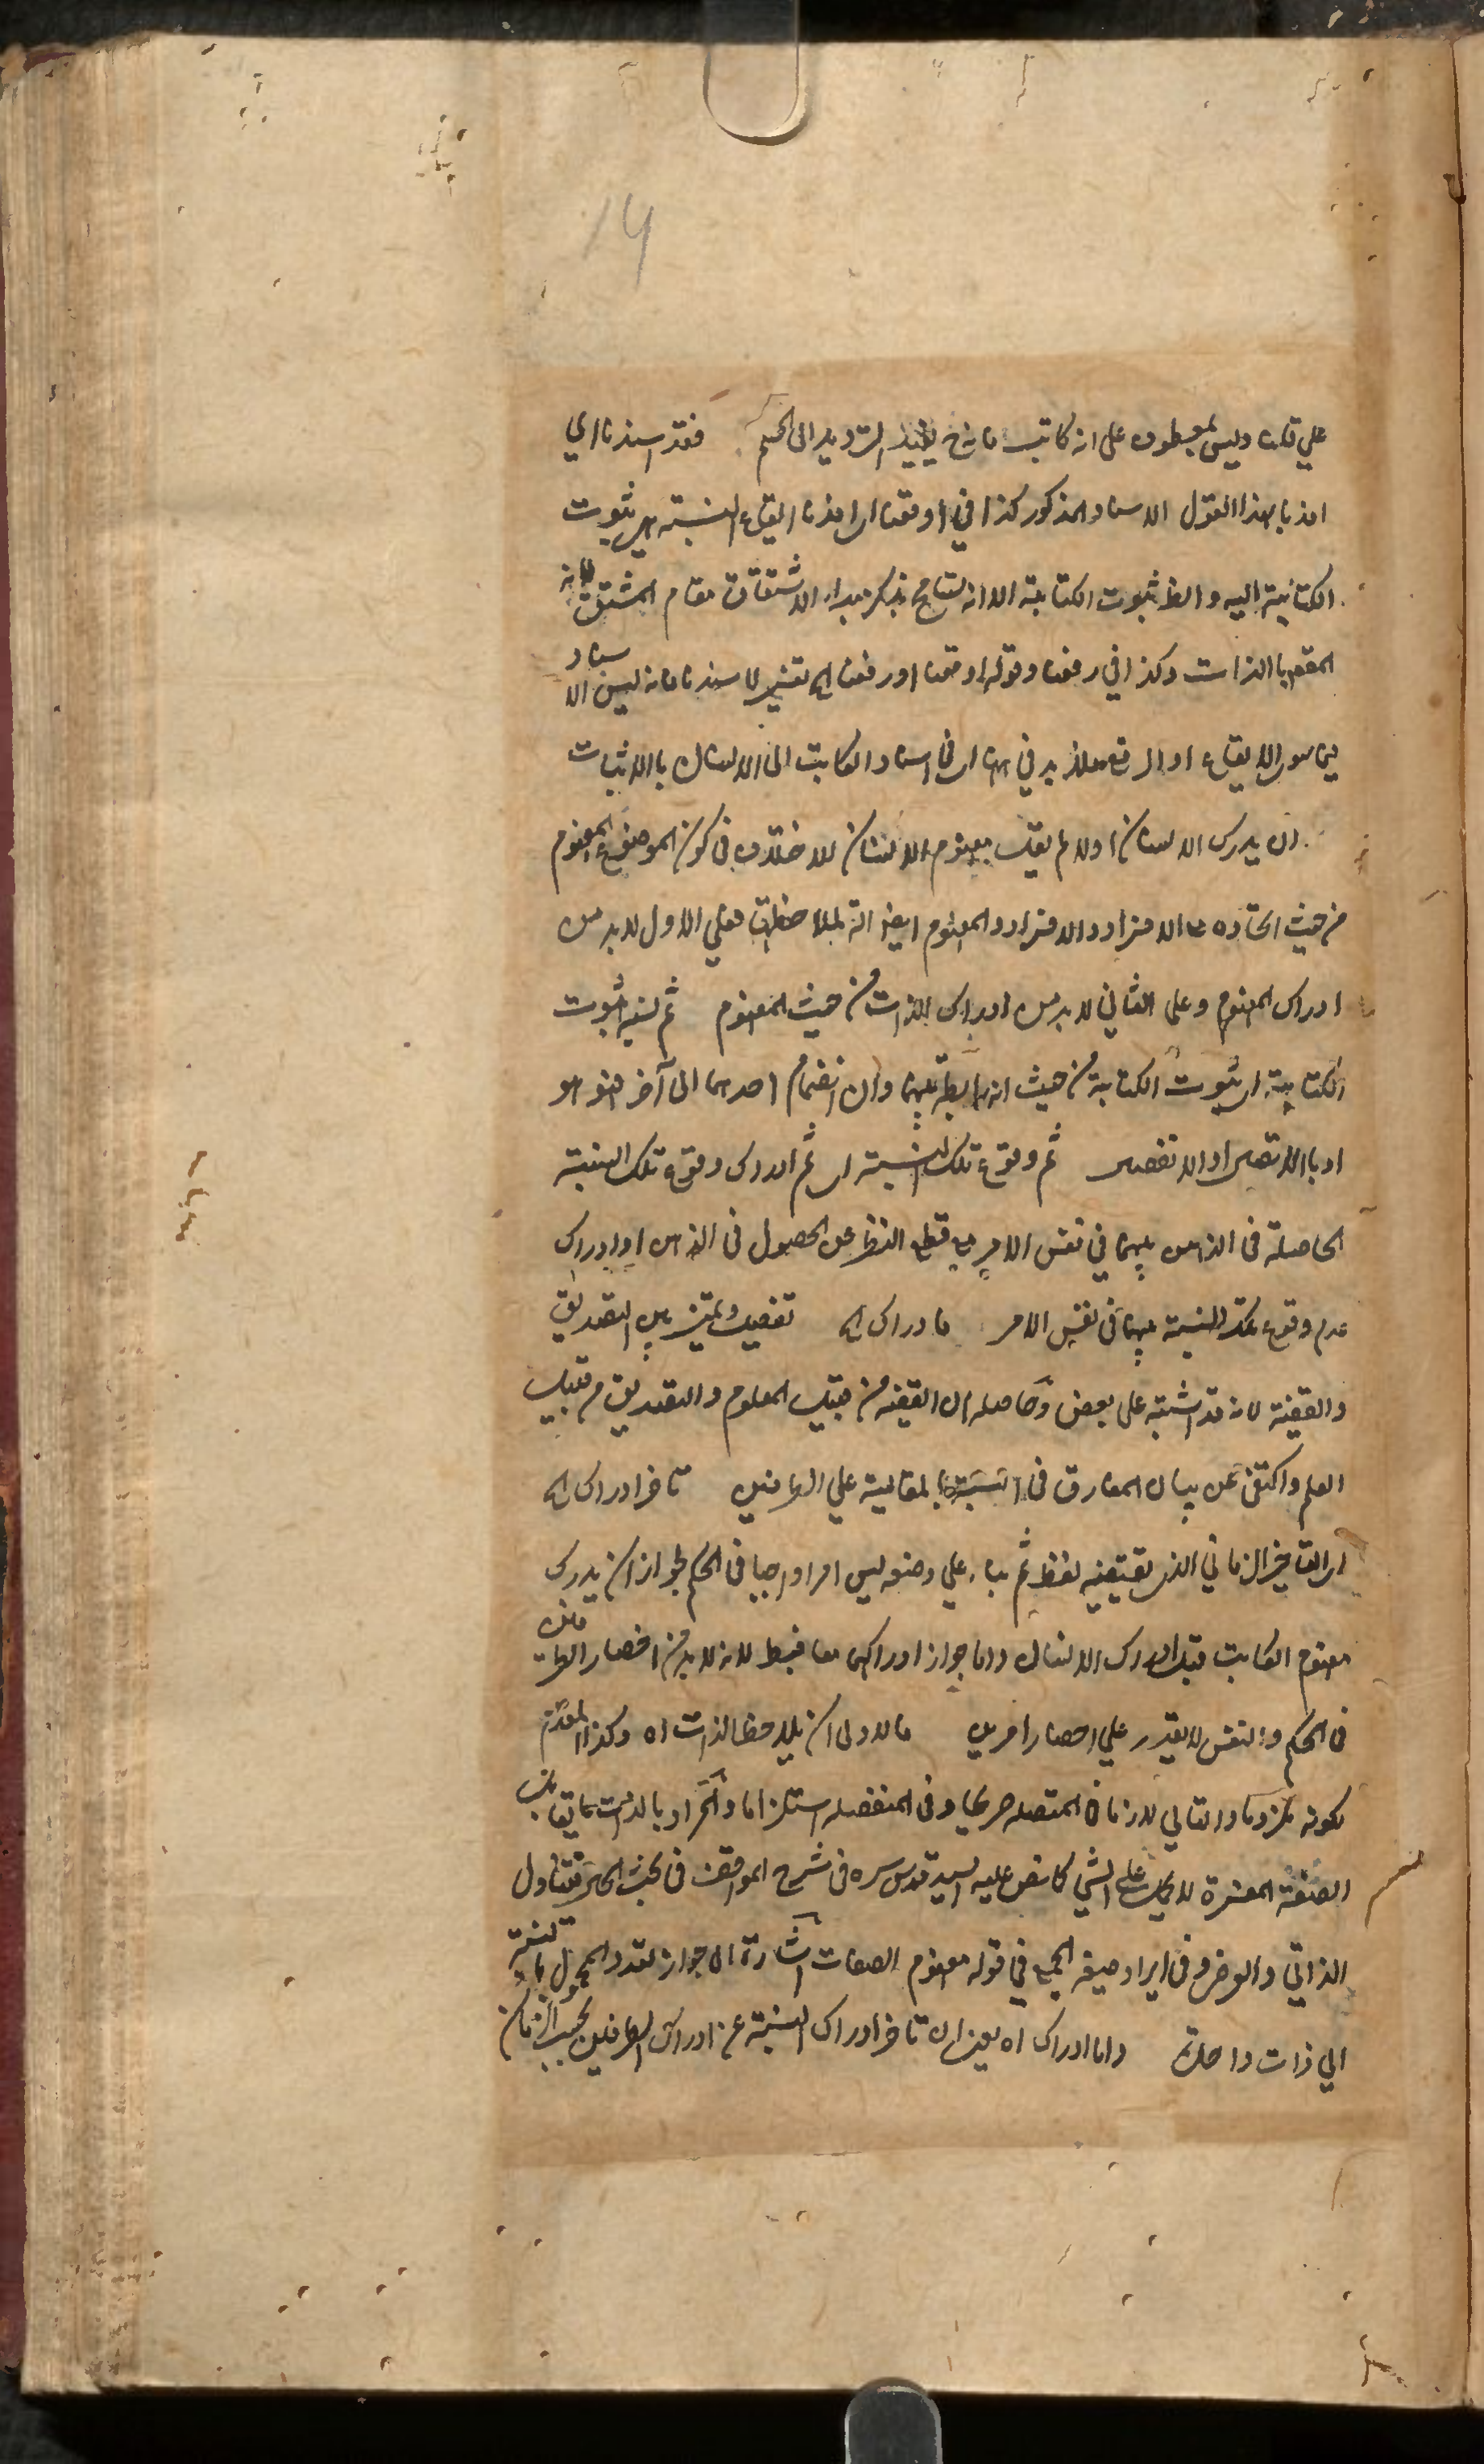 14
علي قلنا وليس بمعطوف على انه كاتب فانه يفيد الترديد الى الحكم فقد اسندنا اي
افدنا بهذا القول الاسناد المذكور كذا في اوقعنا اي افدنا ايقاع النسبة هي ثبوت
الكتابة اليه والظ ثبوت الكتابة الا انه تسامح بذكر مبداء الاشتقاق مقام المشتق فانه
المقصود بالذات وكذا في رفعنا وقوله اوقعنا او رفعنا اه تفسير لاسندنا فانه ليس الاسناد
سوى الايقاع او الرفع فلا بد في اسناد الكاتب الى الانسان بالاثبات
ان يدرك الانسان اولا لم يقل مفهوم الانسان للاختلاف في كون الموضوع المفهوم
من حيث اتحاده مع الافراد او الافراد والمفهوم ايضا آلة لملاحظتها فعلي الاول لا بد من
ادراك المفهوم وعلى الثاني لا بد من ادراك الذات من حيث المفهوم ثم نسبة ثبوت
الكتابة اي ثبوت الكتابة من حيث انه رابطة بينهما وان انضمام احدهما الى آخر هو هو
او بالاتصال او الانفصال ثم وقوع تلك النسبة اي ثم ادراك وقوع تلك النسبة
الحاصلة في الذهن بينهما في نفس الامر مع قطع النظر عن الحصول في الذهن او ادراك
عدم وقوع تلك النسبة بينهما في نفس الامر فادراك اه تفصيل وتمييز بين التصديق
والقضية لانه قد اشتبه على بعض وحاصله ان القضية من قبيل المعلوم والتصديق من قبيل
العلم واكتفى عن بيان المفارق في النسبة بالمقايسة علي الطرفين تاخر ادراك اه
اي التاخير الزماني الذي يقتضيه لفظ ثم بناء علي وضعه ليس امرا واجبا في الحكم لجواز ان يدرك
مفهوم الكاتب قبل ادراك الانسان واما جواز ادراكهما معا فبط لانه لا بد من احضار الطرفين
في الحكم والنفس لا يقدر علي احضار امرين فالاولى ان يلاحظ الذات اه وكذا المقدم
لكونه ملزوما والتالي لازما في المتصلة صريحا وفي المنفصلة استلزاما والمراد بالذات ما يقابل
الصفة المفسرة لا يحمل علي الشي كما نص عليه السيد قدس سره في شرح المواقف في بحث فتناول
الذاتي والعرض وفي ايراد صيغة الجمع في قوله مفهوم الصفات اشارة الى جواز تعدد المحمول بالنسبة
الي ذات واحدة واما ادراك اه يعني ان تاخر ادراك النسبة عن ادراك الطرفين بحسب الزمان